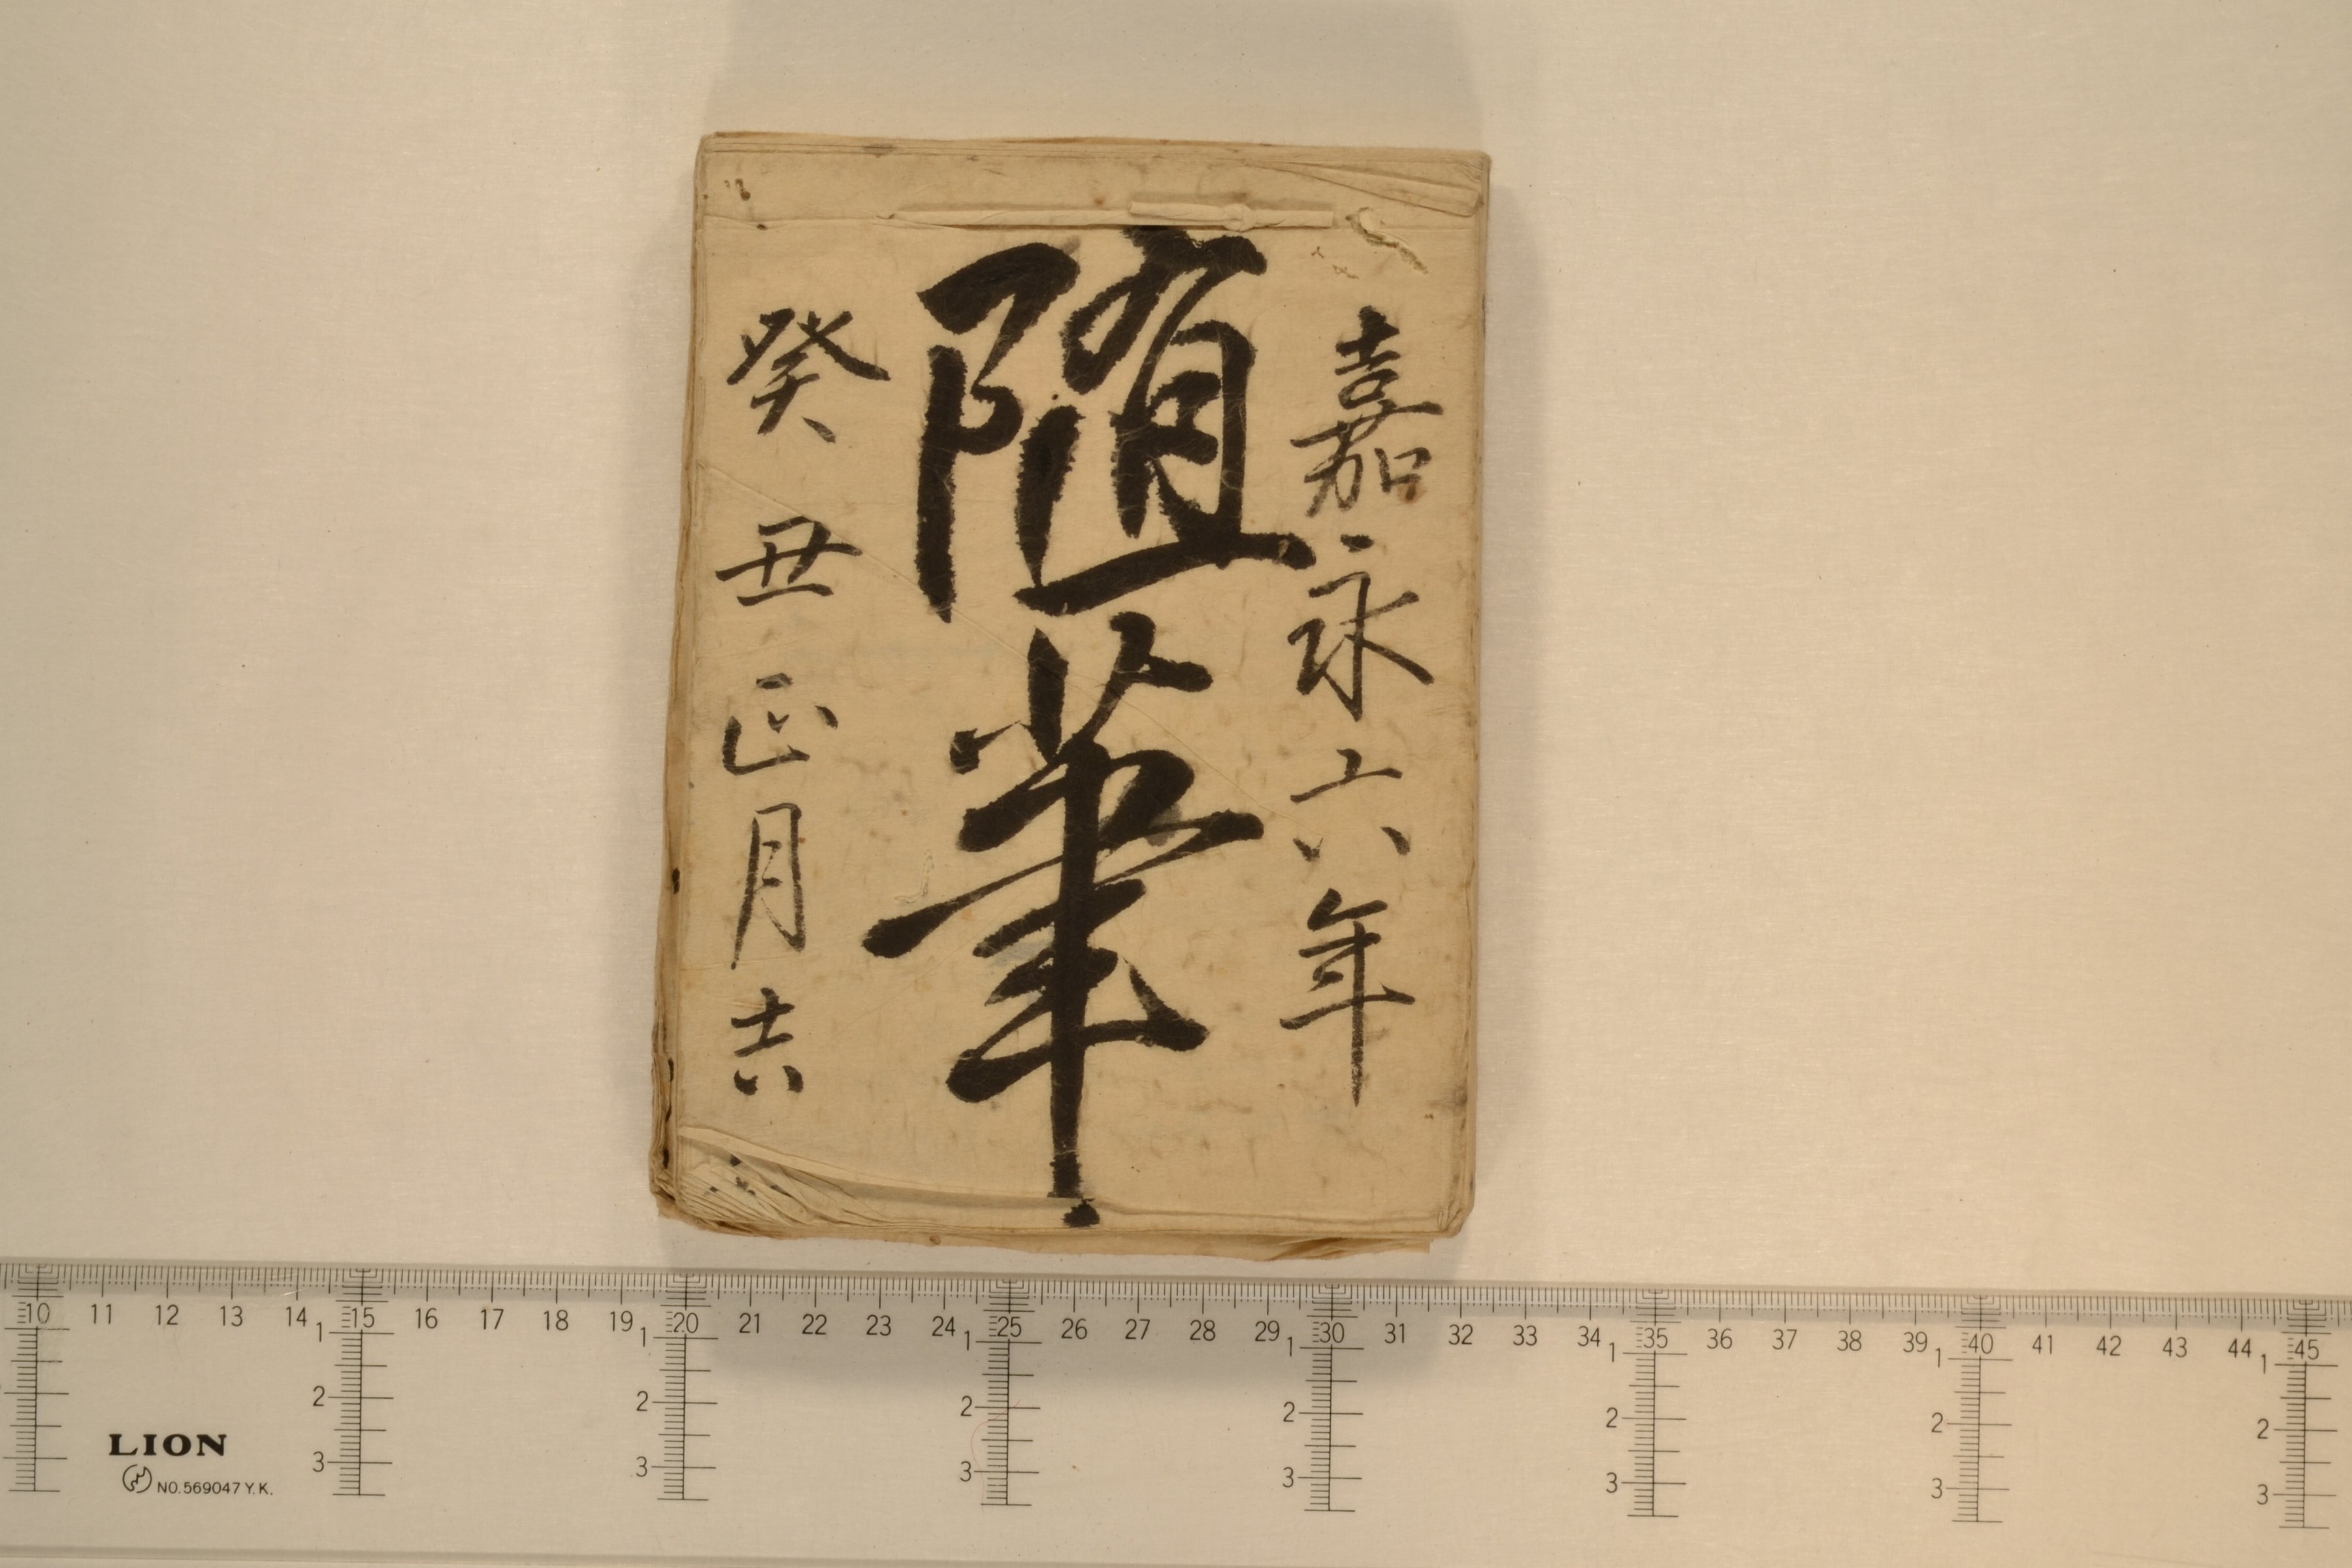 嘉永六年
随筆
癸丑正月吉
10 11 12 13 14 15 16 17 18 19 20 21 22 23 24 25 26 27 28 29 30 31 32 33 34 35 36 37 38 39 40 41 42 43 44 45
1 1 1 1 1 1 1
2 2 2 2 2 2 2
3 3 3 3 3 3 3
LION
NO.569047 Y.K.